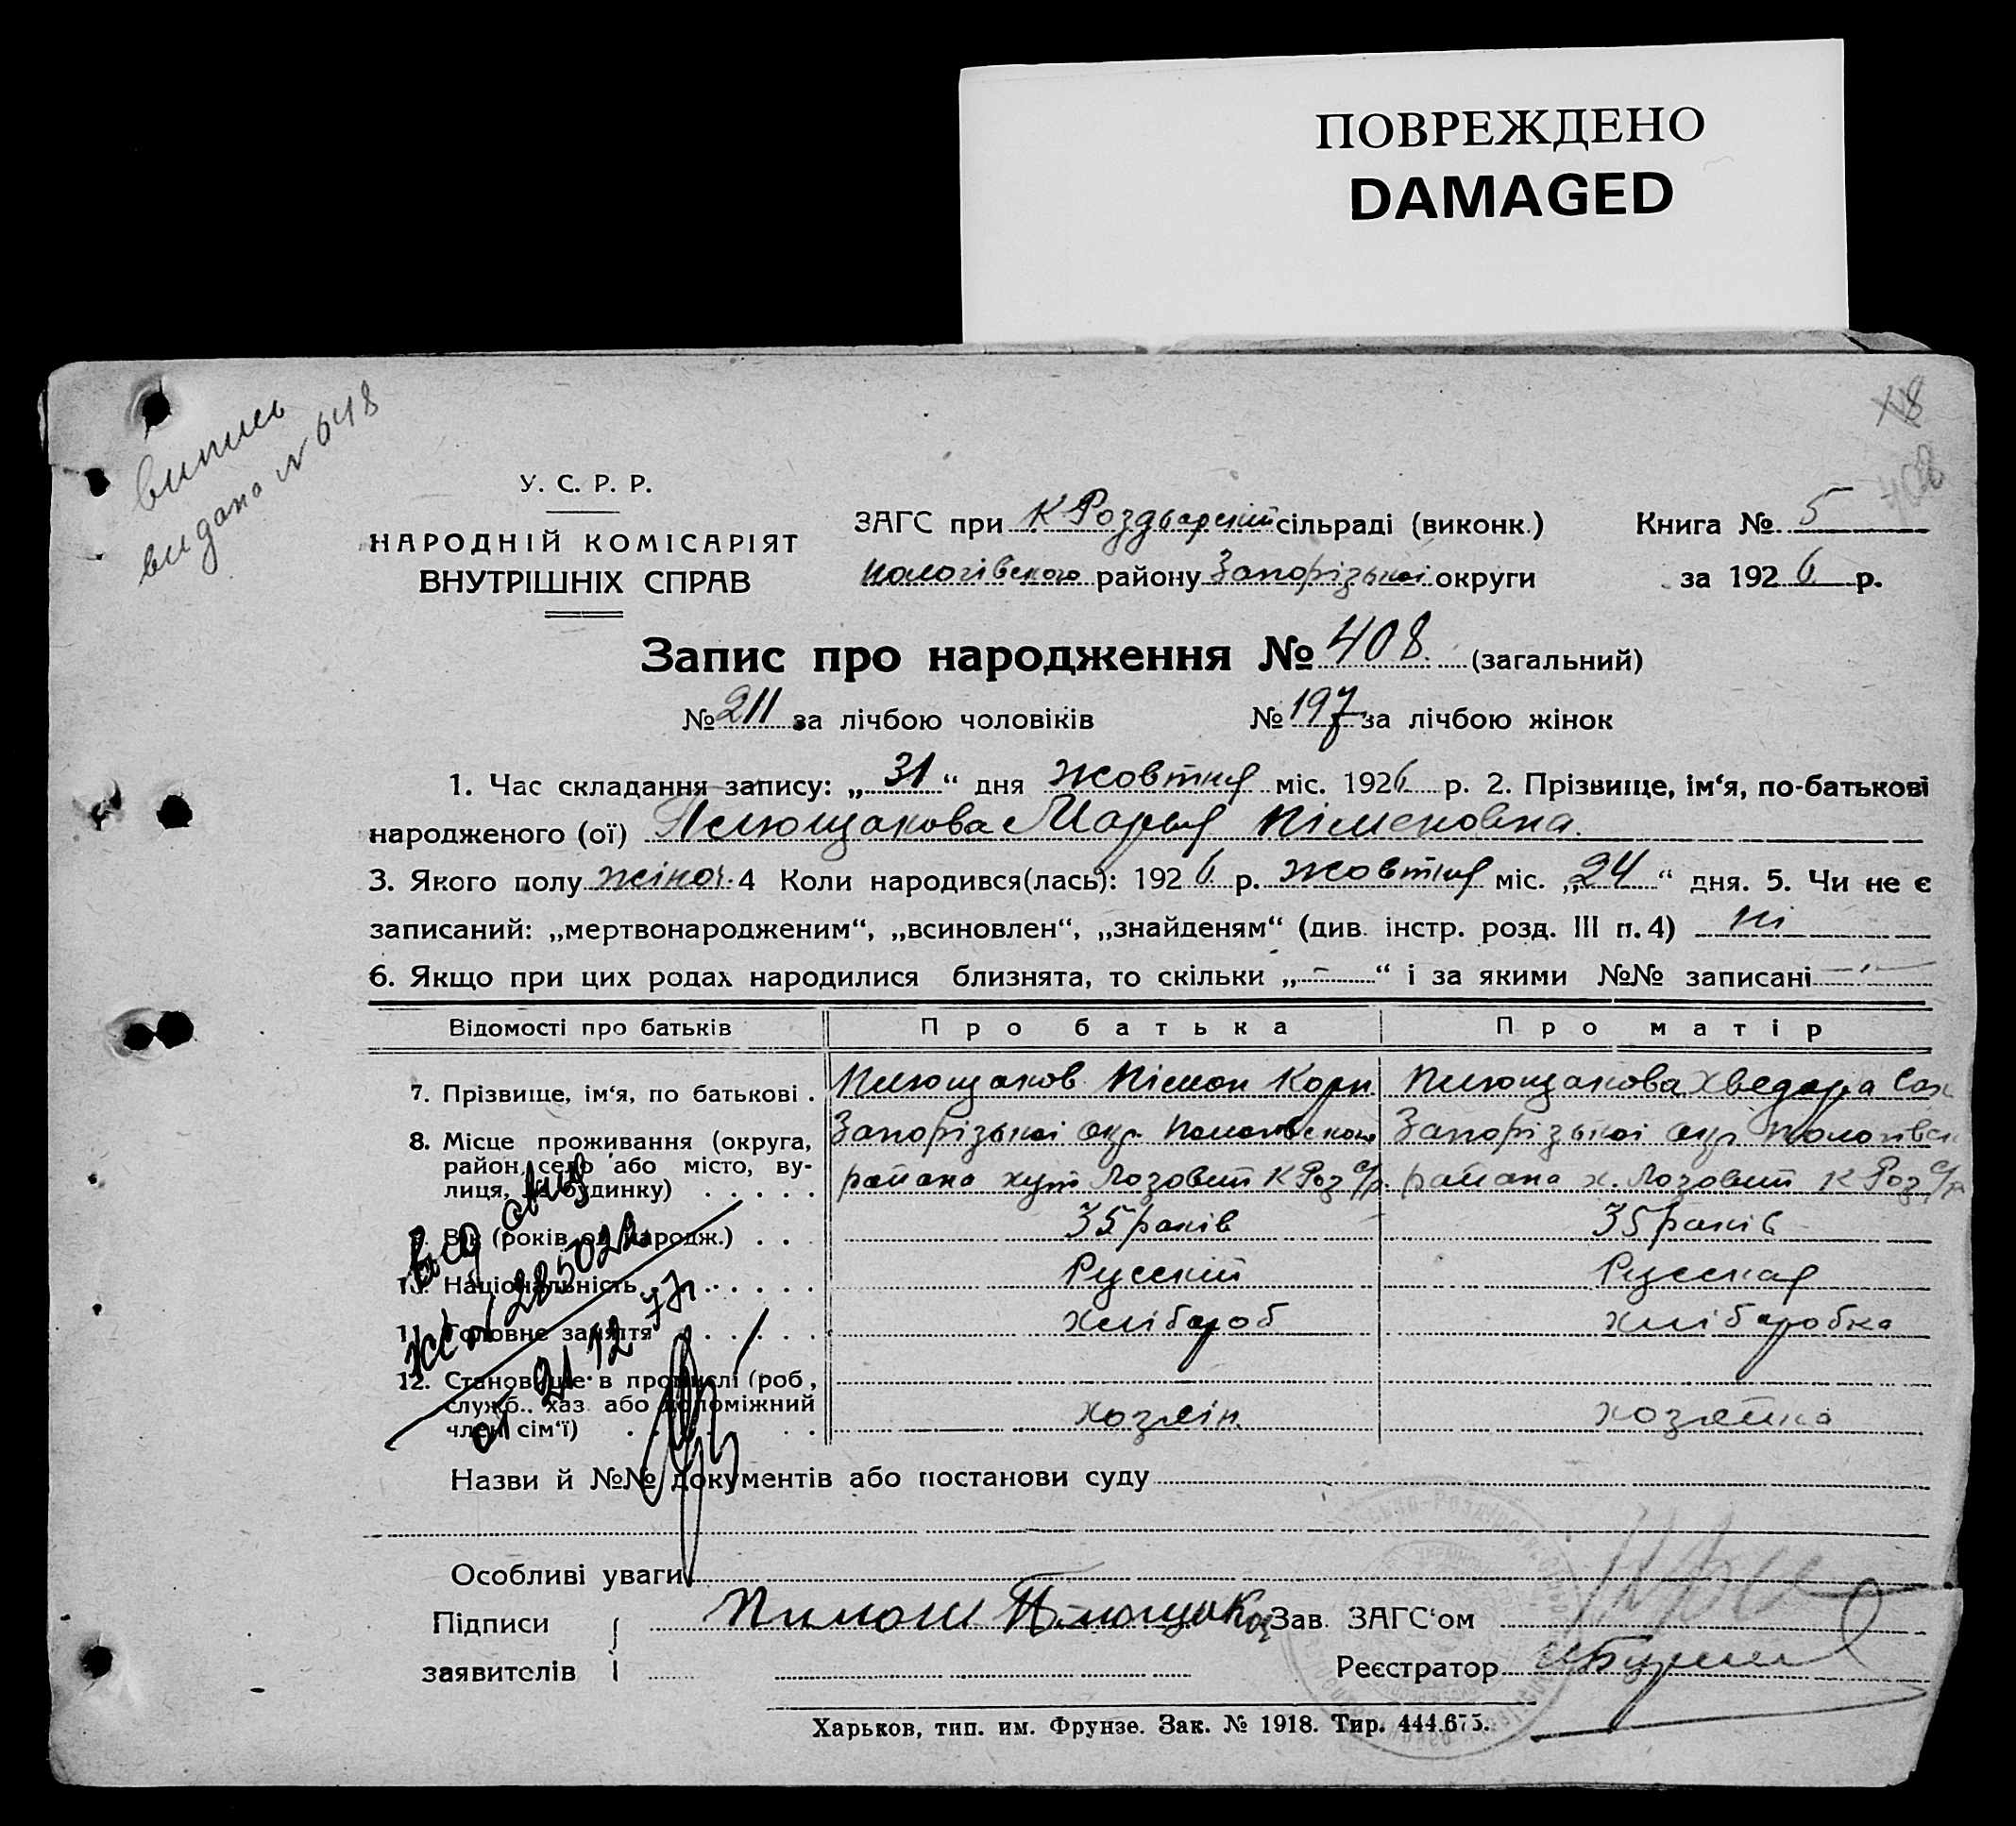 ПОВРЕЖДЕНО
DAMAGED
випись
видано N 648
408
У. С. Р. Р.
НАРОДНІЙ КОМІСАРІЯТ
ВНУТРІШНІХ СПРАВ
ЗАГС при К Роздорский сільраді (виконк.) Книга № 5
Пологівского району Запорізькоі округи за 1926 р.
Запис про народження № 408. (загальний)
№ 211 за лічбою чоловіків № 197 за лічбою жінок
1. Час складання запису: „31“ дня жовтня міс. 1926 р. 2. Прізвище, ім‘я, по-батькові
народженого (ої) Плющакова Марья Піменовна.
3. Якого полу жіноч. 4 Коли народився(лась): 1926 р. жовтня міс. „24“ дня. 5. Чи не є
записаний: „мертвонародженим“, „всиновлен“, „знайденям“ (див. інстр. розд. III п. 4) ні
6. Якщо при цих родах народилися близнята, то скільки „-“ і за якими №№ записані -
Відомості про батьків Про батька Про матір
7. Прізвище, ім‘я, по батькові . Плющаков Пімон Корн. Плющакова Хведора
8. Місце проживання (округа, Запорізькоі окр. Пологівского Запорізькоі окр Пологівск
район, село або місто, ву- района хут Лозовий К Роз с/р. района х. Лозовий К Роз с/р
лиця, № будинку) . . . . .
9. Вік (років од народж.) . . . 35 раків 35 раків
10. Національність . . . . . . Русский Русская
11. Головне заняття . . . . . . хлібароб хлібаробка
12. Становище в промислі (роб.,
служб., хаз або допоміжний хозяін. хозяйка
член сім‘ї) . . . . . .
Выд свид
ЖС № 285022
от 21 12 77г
Назви й №№ документів або постанови суду
Особливі уваги
Підписи Пимон Плющако Зав. ЗАГС‘ом
заявителів Реєстратор
Харьков, тип. им. Фрунзе. Зак. № 1918. Тир. 444.675.